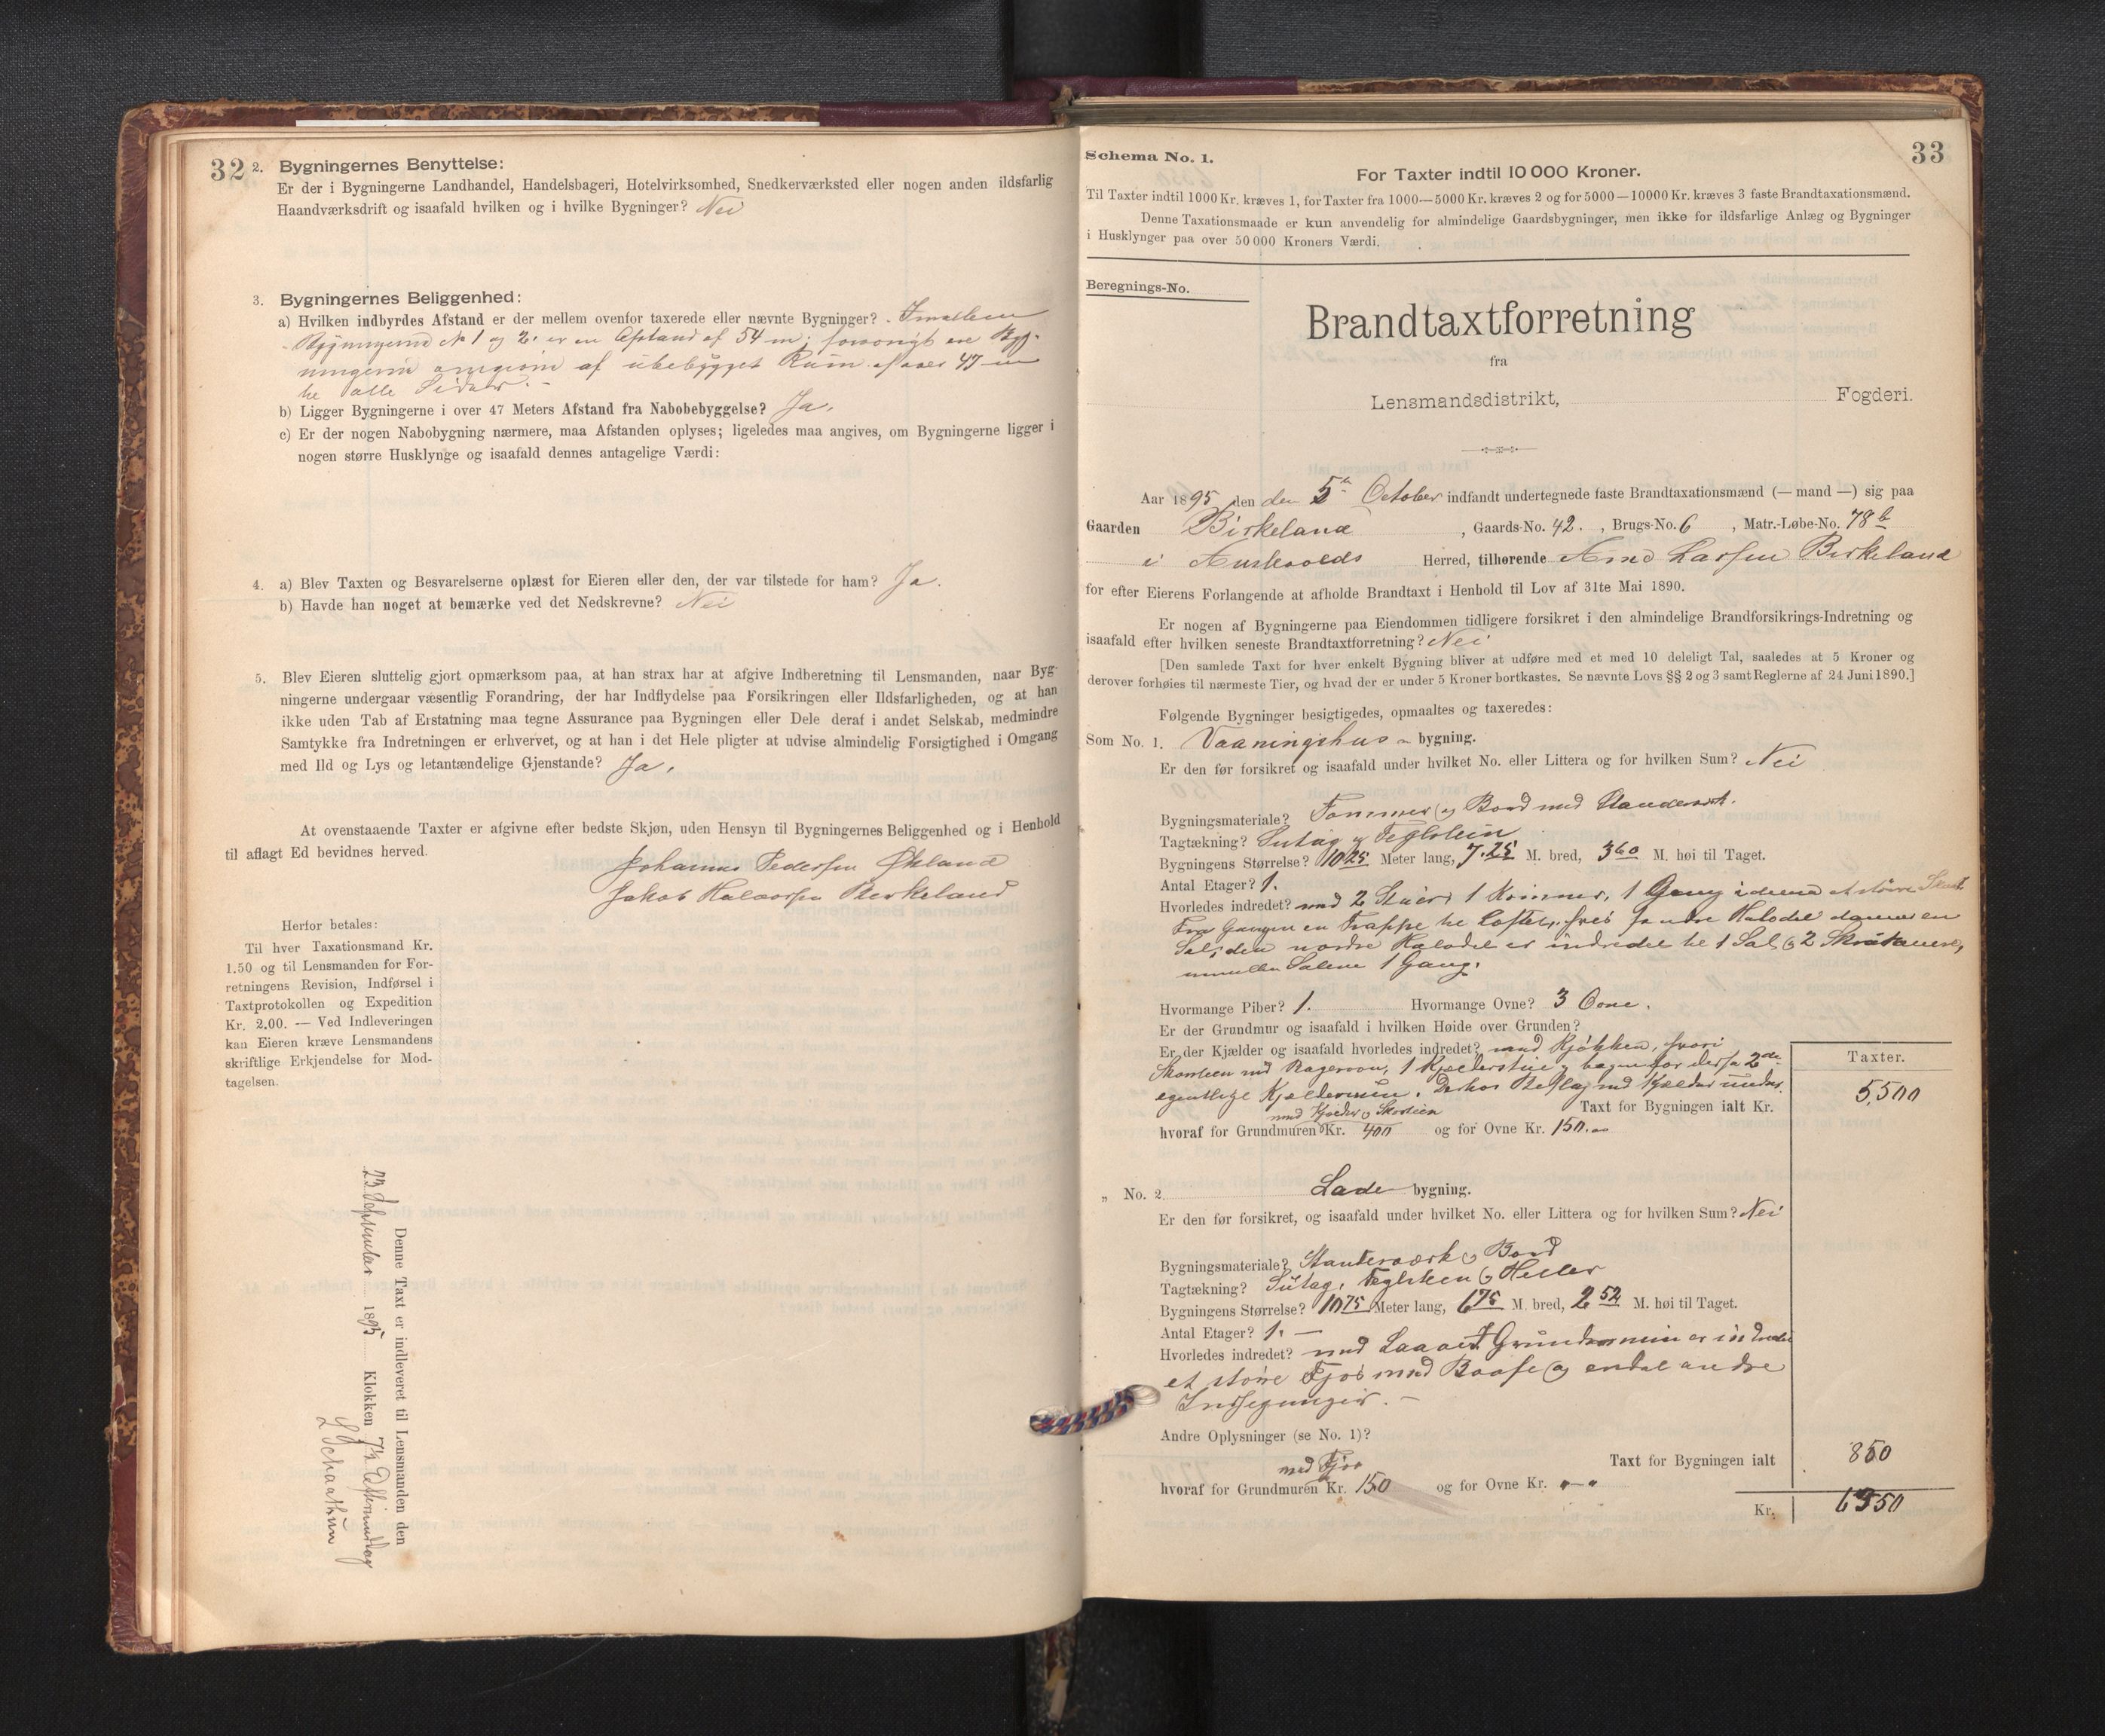 32
2. Bygningernes Benyttelse:
Er der i Bygningerne Landhandel, Handelsbageri, Hotelvirksomhed, Snedkerværksted eller nogen anden ildsfarlig
Haandværksdrift og isaafald hvilken og i hvilke Bygninger? Nei
3. Bygningernes Beliggenhed:
a) Hvilken indbyrdes Afstand er der mellem ovenfor taxerede eller nævnte Bygninger? Imellem
Bygningerne No 1 og 2 er en Afstand af 54 m; forøvrigt ere Byg-
ningerne omgivne af ubebygget Rum af over 47 m
til alle Sider. -
b) Ligger Bygningerne i over 47 Meters Afstand fra Nabobebyggelse? Ja.
c) Er der nogen Nabobygning nærmere, maa Afstanden oplyses; ligeledes maa angives, om Bygningerne ligger i
nogen større Husklynge og isaafald dennes antagelige Værdi:
4. a) Blev Taxten og Besvarelserne oplæst for Eieren eller den, der var tilstede for ham? Ja.
b) Havde han noget at bemærke ved det Nedskrevne? Nei
5. Blev Eieren sluttelig gjort opmærksom paa, at han strax har at afgive Indberetning til Lensmanden, naar Byg-
ningerne undergaar væsentlig Forandring, der har Indflydelse paa Forsikringen eller Ildsfarligheden, og at han
ikke uden Tab af Erstatning maa tegne Assurance paa Bygningen eller Dele deraf i andet Selskab, medmindre
Samtykke fra Indretningen er erhvervet, og at han i det Hele pligter at udvise almindelig Forsigtighed i Omgang
med Ild og Lys og letantændelige Gjenstande? Ja.
At ovenstaaende Taxter er afgivne efter bedste Skjøn, uden Hensyn til Bygningernes Beliggenhed og i Henhold
til aflagt Ed bevidnes herved.
Johannes Pedersen Økland
Jakob Halvorsen Birkeland
Herfor betales:
Til hver Taxationsmand Kr.
1.50 og til Lensmanden for For-
retningens Revision, Indførsel i
Taxtprotokollen og Expedition
Kr. 2.00. — Ved Indleveringen
kan Eieren kræve Lensmandens
skriftlige Erkjendelse for Mod-
tagelsen.
Denne Taxt er indleveret til Lensmanden den
23 September 1895 Klokken 7½ Eftermiddag
L Schaathun
33
Schema No. 1.
For Taxter indtil 10 000 Kroner.
Til Taxter indtil 1000 Kr. kræves 1, for Taxter fra 1000—5000 Kr. kræves 2 og for 5000—10000 Kr. kræves 3 faste Brandtaxationsmænd.
Denne Taxationsmaade er kun anvendelig for almindelige Gaardsbygninger, men ikke for ildsfarlige Anlæg og Bygninger
i Husklynger paa over 50 000 Kroners Værdi.
Beregnings-No.
Brandtaxtforretning
fra
Lensmandsdistrikt, Fogderi.
Aar 1895 den den 5te October indfandt undertegnede faste Brandtaxationsmænd (— mand —) sig paa
Gaarden Birkeland, Gaards-No. 42., Brugs-No. 6, Matr.-Løbe-No. 78 b
i Austevolds Herred, tilhørende Arne Larsen Birkeland
for efter Eierens Forlangende at afholde Brandtaxt i Henhold til Lov af 31te Mai 1890.
Er nogen af Bygningerne paa Eiendommen tidligere forsikret i den almindelige Brandforsikrings-Indretning og
isaafald efter hvilken seneste Brandtaxtforretning? Nei
[Den samlede Taxt for hver enkelt Bygning bliver at udføre med et med 10 deleligt Tal, saaledes at 5 Kroner og
derover forhøies til nærmeste Tier, og hvad der er under 5 Kroner bortkastes. Se nævnte Lovs §§ 2 og 3 samt Reglerne af 24 Juni 1890.]
Følgende Bygninger besigtigedes, opmaaltes og taxeredes:
Som No. 1. Vaaningshus - bygning.
Er den før forsikret og isaafald under hvilket No. eller Littera og for hvilken Sum? Nei
Bygningsmateriale? Tømmer og Bord med
Tagtækning? Sutag og Teglsten
Bygningens Størrelse? 10 25 Meter lang, 7.25 M. bred, 3 60 M. høi til Taget.
Antal Etager? 1.
Hvorledes indredet? med 2 Stuer, 1 Kammer, 1 Gang i denne et større Skab
Fra Gangen en Trappe til Loftet, hvis søndre Halvdel danner en
Sal, den nordre Halvdel er indredet til 1 Sal og 2
imellem Salene 1 Gang.
Hvormange Piber? 1. Hvormange Ovne? 3 Ovne.
Er der Grundmur og isaafald i hvilken Høide over Grunden?
Er der Kjælder og isaafald hvorledes indredet? med Kjøkken, hvori
Skorsten med Bagerovn, 1 Kjælderstue og bagenfor disse 2de
egentlige Kjælderrum. Kjælder under.
Taxter.
Taxt for Bygningen ialt Kr. 5,500
med Kjælder og Skorsten
hvoraf for Grundmuren Kr. 400 og for Ovne Kr. 150.
„ No. 2 Lade bygning.
Er den før forsikret, og isaafald under hvilket No. eller Littera og for hvilken Sum? Nei
Bygningsmateriale? Standerværk og Bord
Tagtækning? Sutag, Teglsten og Heller
Bygningens Størrelse? 10 75 Meter lang, 6 75 M. bred, 2 52 M. høi til Taget.
Antal Etager? 1. —
Hvorledes indredet? med er indredet
et større Fjøs med Baase og endel andre
Indhegninger. -
Andre Oplysninger (se No. 1)?
Taxt for Bygningen ialt 850
med Fjøs
hvoraf for Grundmuren Kr. 150 og for Ovne Kr. „—„
Kr. 6350